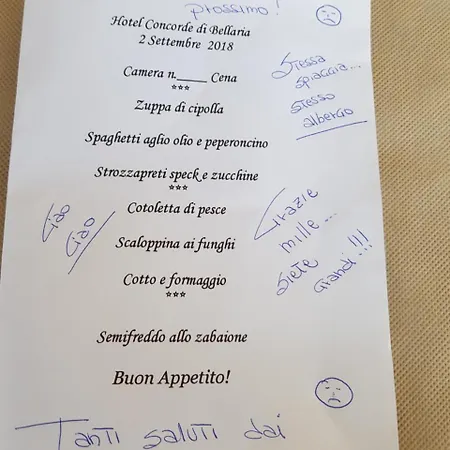 prossimo!
Hotel Concorde di Bellaria
2 Settembre 2018
Stessa
spiaggia...
stesso
albergo
Camera n._____ Cena
***
Zuppa di cipolla
Spaghetti aglio olio e peperoncino
Strozzapreti speck e zucchine
***
Cotoletta di pesce
Scaloppina ai funghi
Cotto e formaggio
***
Ciao
Ciao
Grazie
mille...
siete
Grandi!!!
Semifreddo allo zabaione
Buon Appetito!
Tanti saluti dai